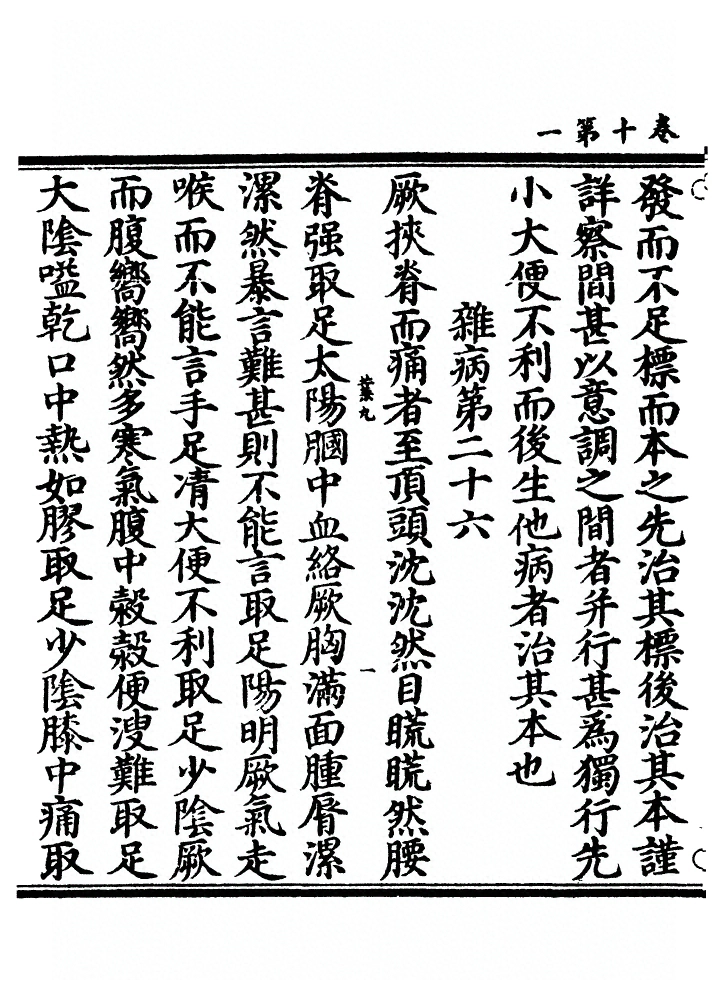 卷十第一
發而不足標而本之先治其標後治其本謹
詳察間甚以意調之間者并行甚爲獨行先
小大便不利而後生他病者治其本也
雜病第二十六
厥挾脊而痛者至頂頭沈沈然目䀮䀮然腰
脊强取足太陽膕中血絡厥胸滿面腫脣漯
漯然暴言難甚則不能言取足陽明厥氣走
喉而不能言手足凊大便不利取足少陰厥
而腹嚮嚮然多寒氣腹中榖榖便溲難取足
大陰嗌乾口中熱如膠取足少陰膝中痛取